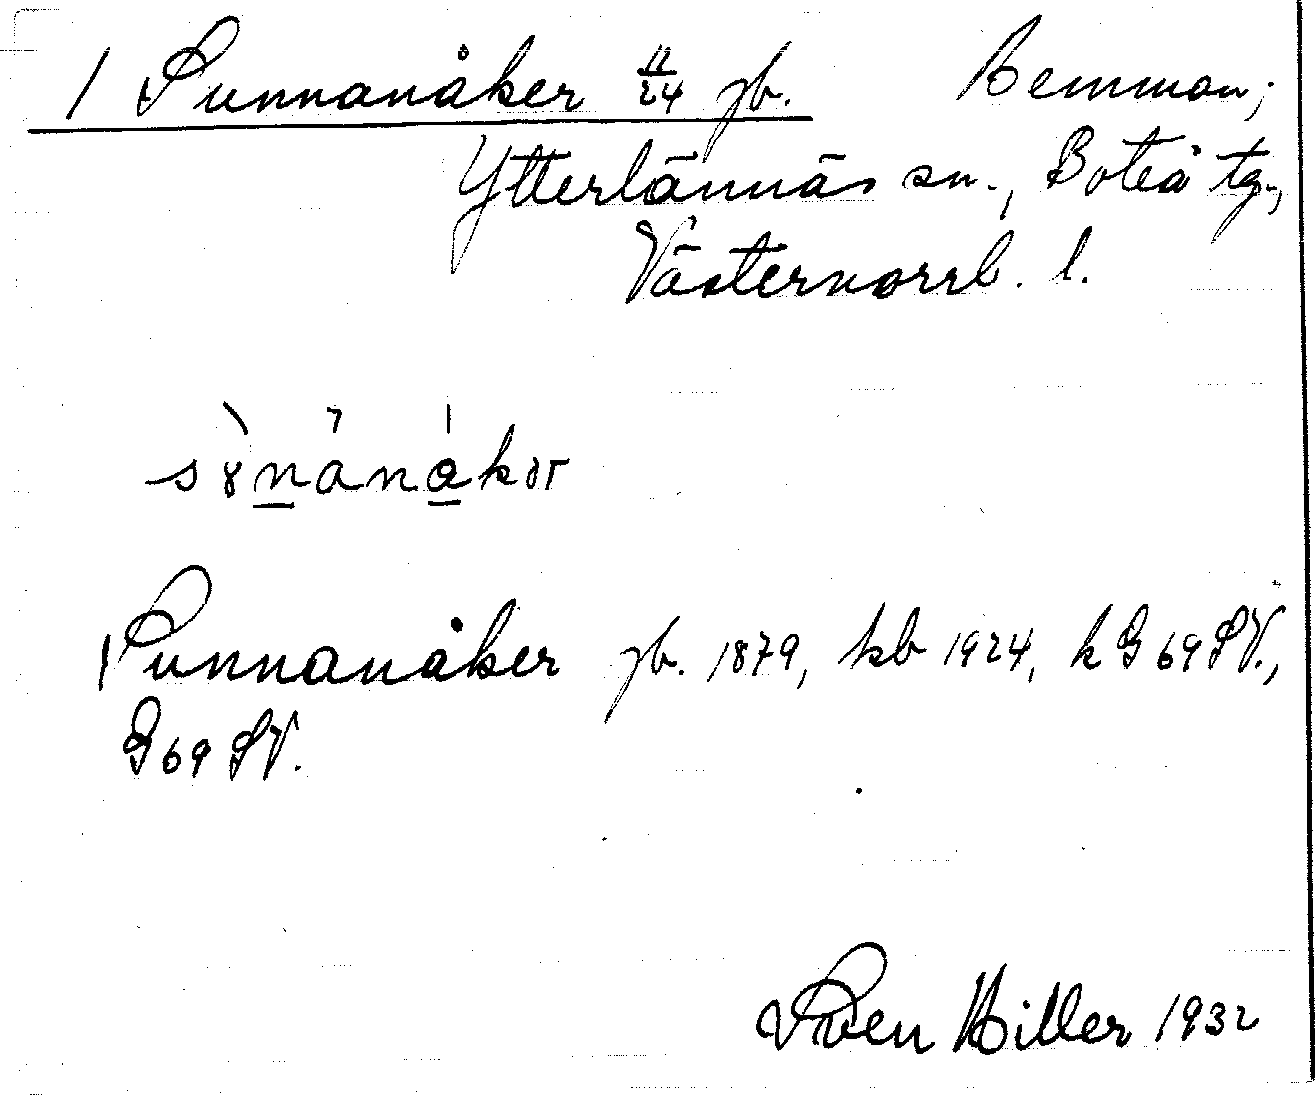 1 Sunnanåker 11/24 jb. Hemman;
Ytterlännäs sn., Boteå tg.,
Västernorrl. l.
Sunnanåker jb. 1879, kb 1924, k G 69 SV.,
G 69 SV.
Sven Hiller 1932